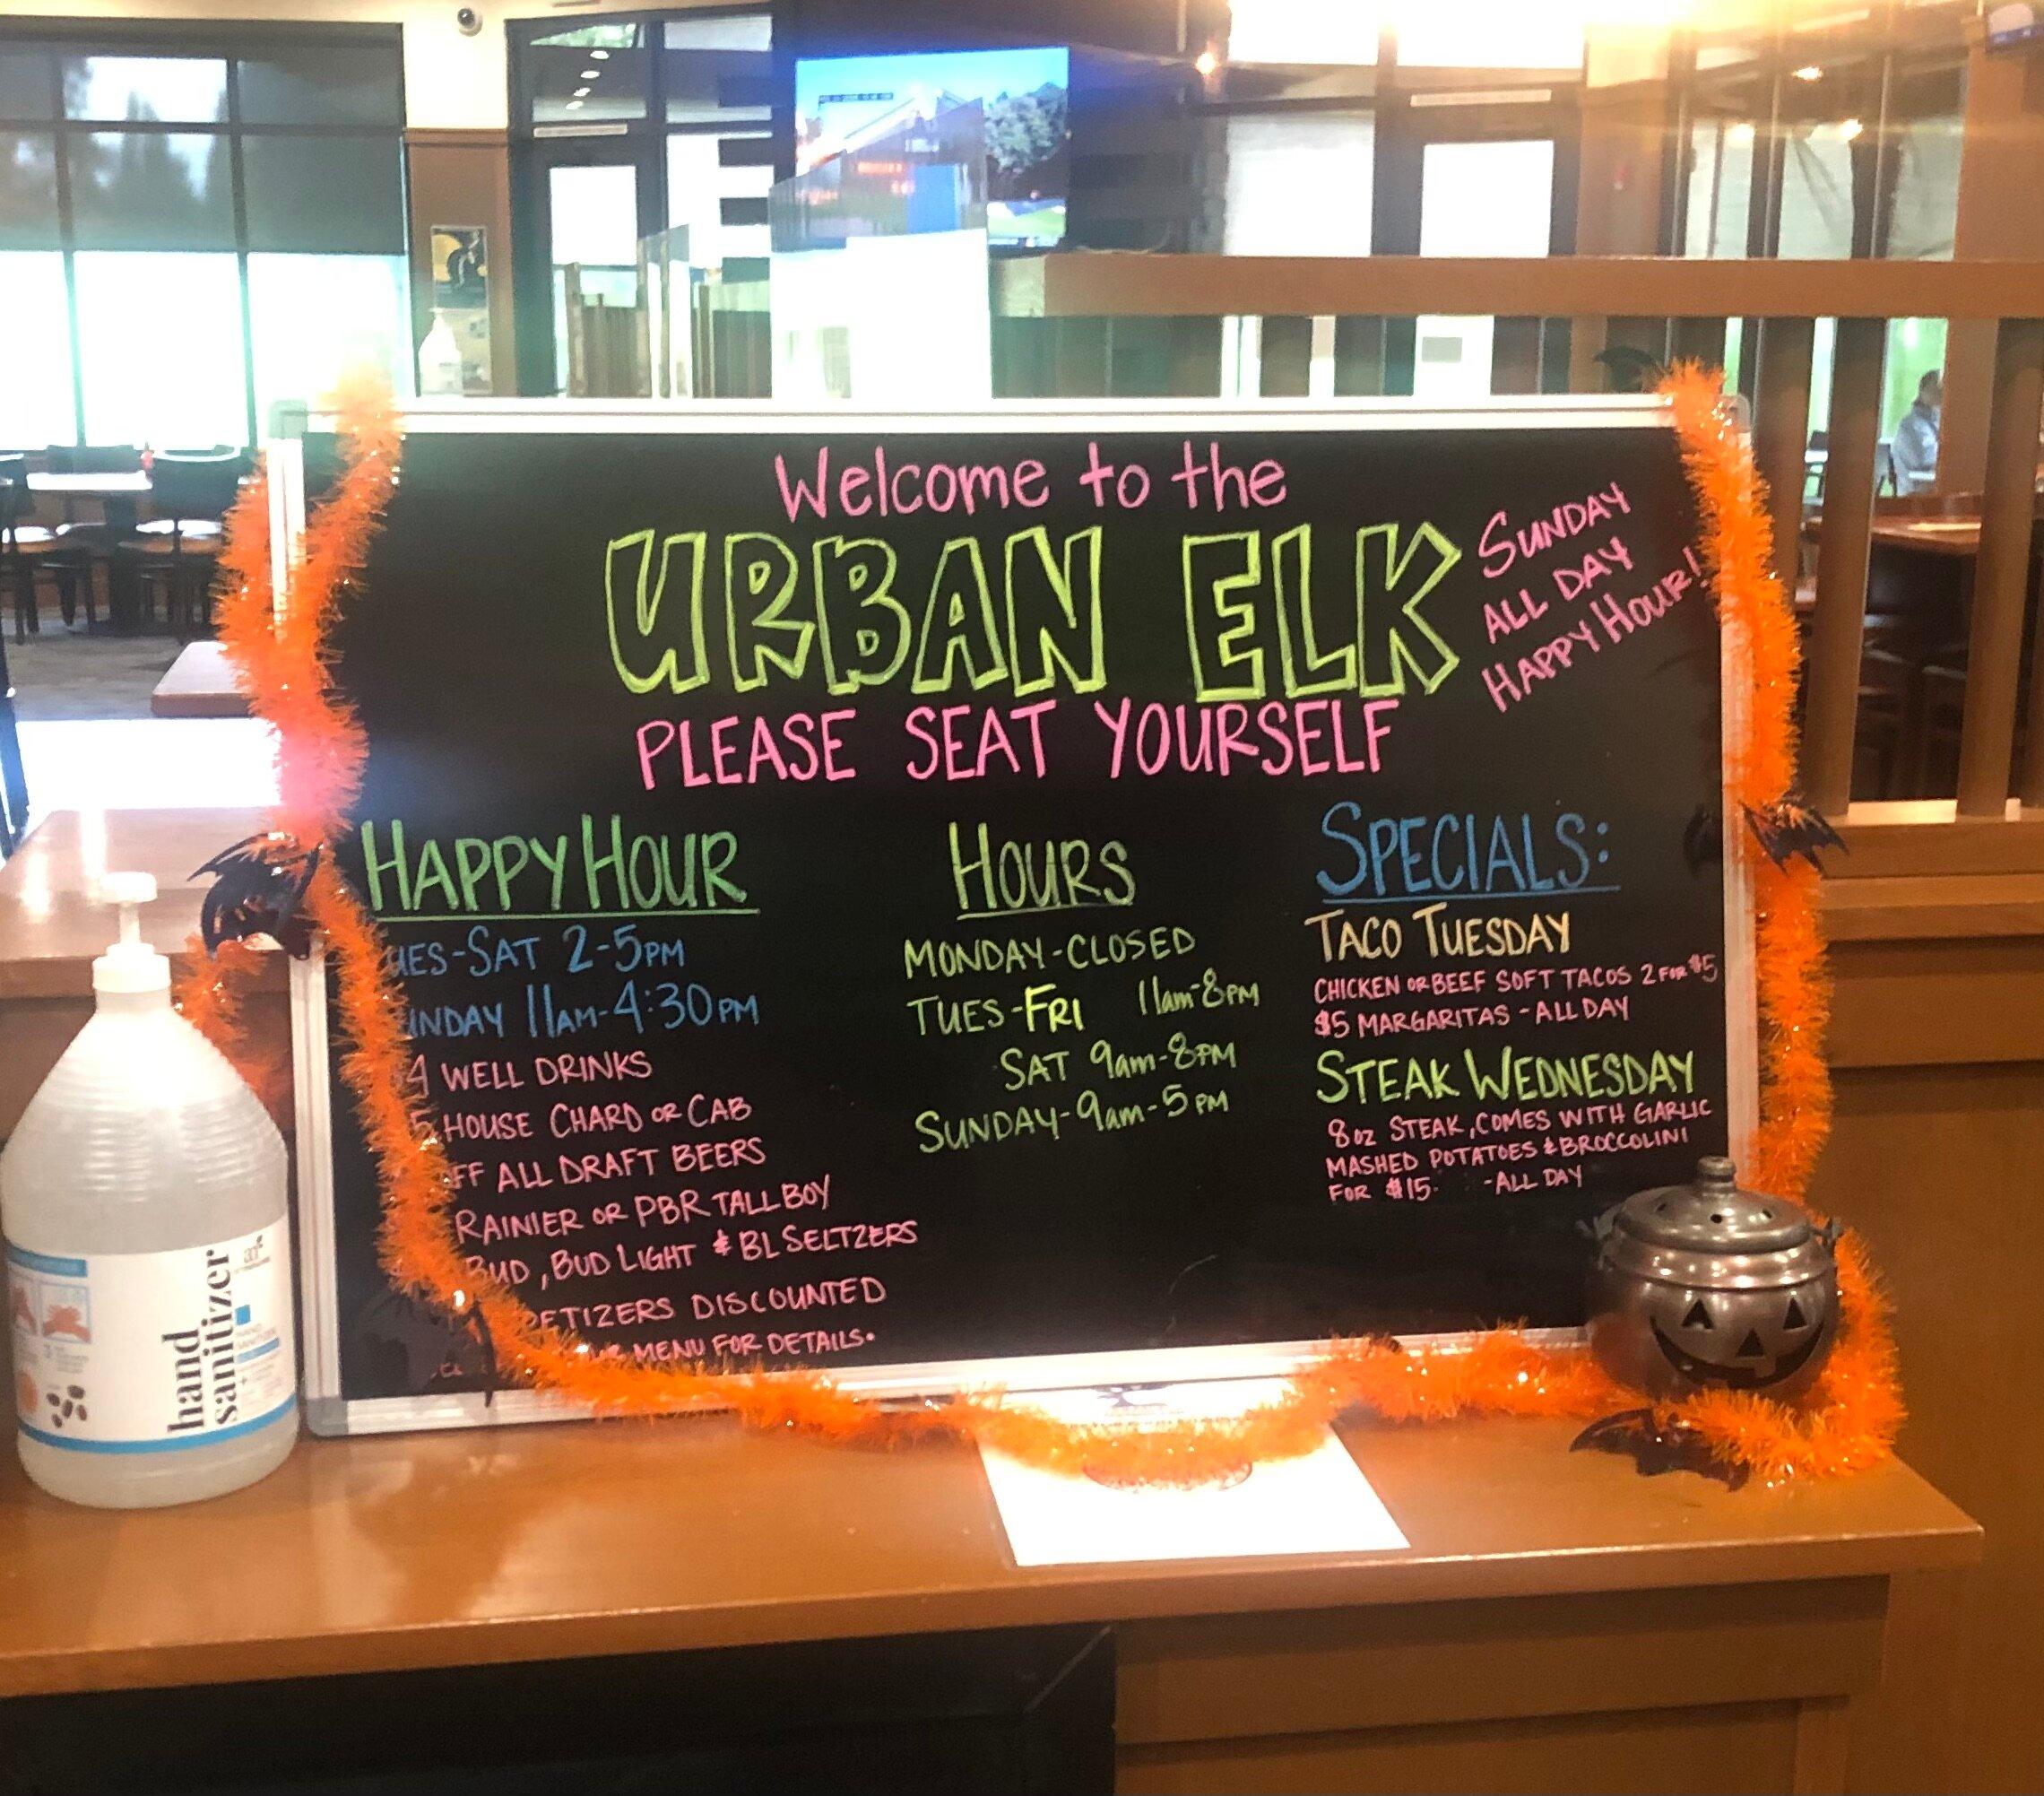 Welcome to the
URBAN ELK
PLEASE SEAT YOURSELF
SUNDAY
ALL DAY
HAPPY HOUR!
HAPPY HOUR
UES-SAT 2-5PM
UNDAY 11AM-4:30PM
4 WELL DRINKS
5 HOUSE CHARD OR CAB
FF ALL DRAFT BEERS
RAINIER OR PBR TALLBOY
BUD, BUD LIGHT & BL SELTZERS
PETIZERS DISCOUNTED
MENU FOR DETAILS.
HOURS
MONDAY-CLOSED
TUES-FRI 11am-8PM
SAT 9am-8PM
SUNDAY-9am-5PM
SPECIALS:
TACO TUESDAY
CHICKEN OR BEEF SOFT TACOS 2 FOR $5
$5 MARGARITAS - ALL DAY
STEAK WEDNESDAY
8 OZ STEAK, COMES WITH GARLIC
MASHED POTATOES & BROCCOLINI
FOR $15. -ALL DAY
hand
sanitizer